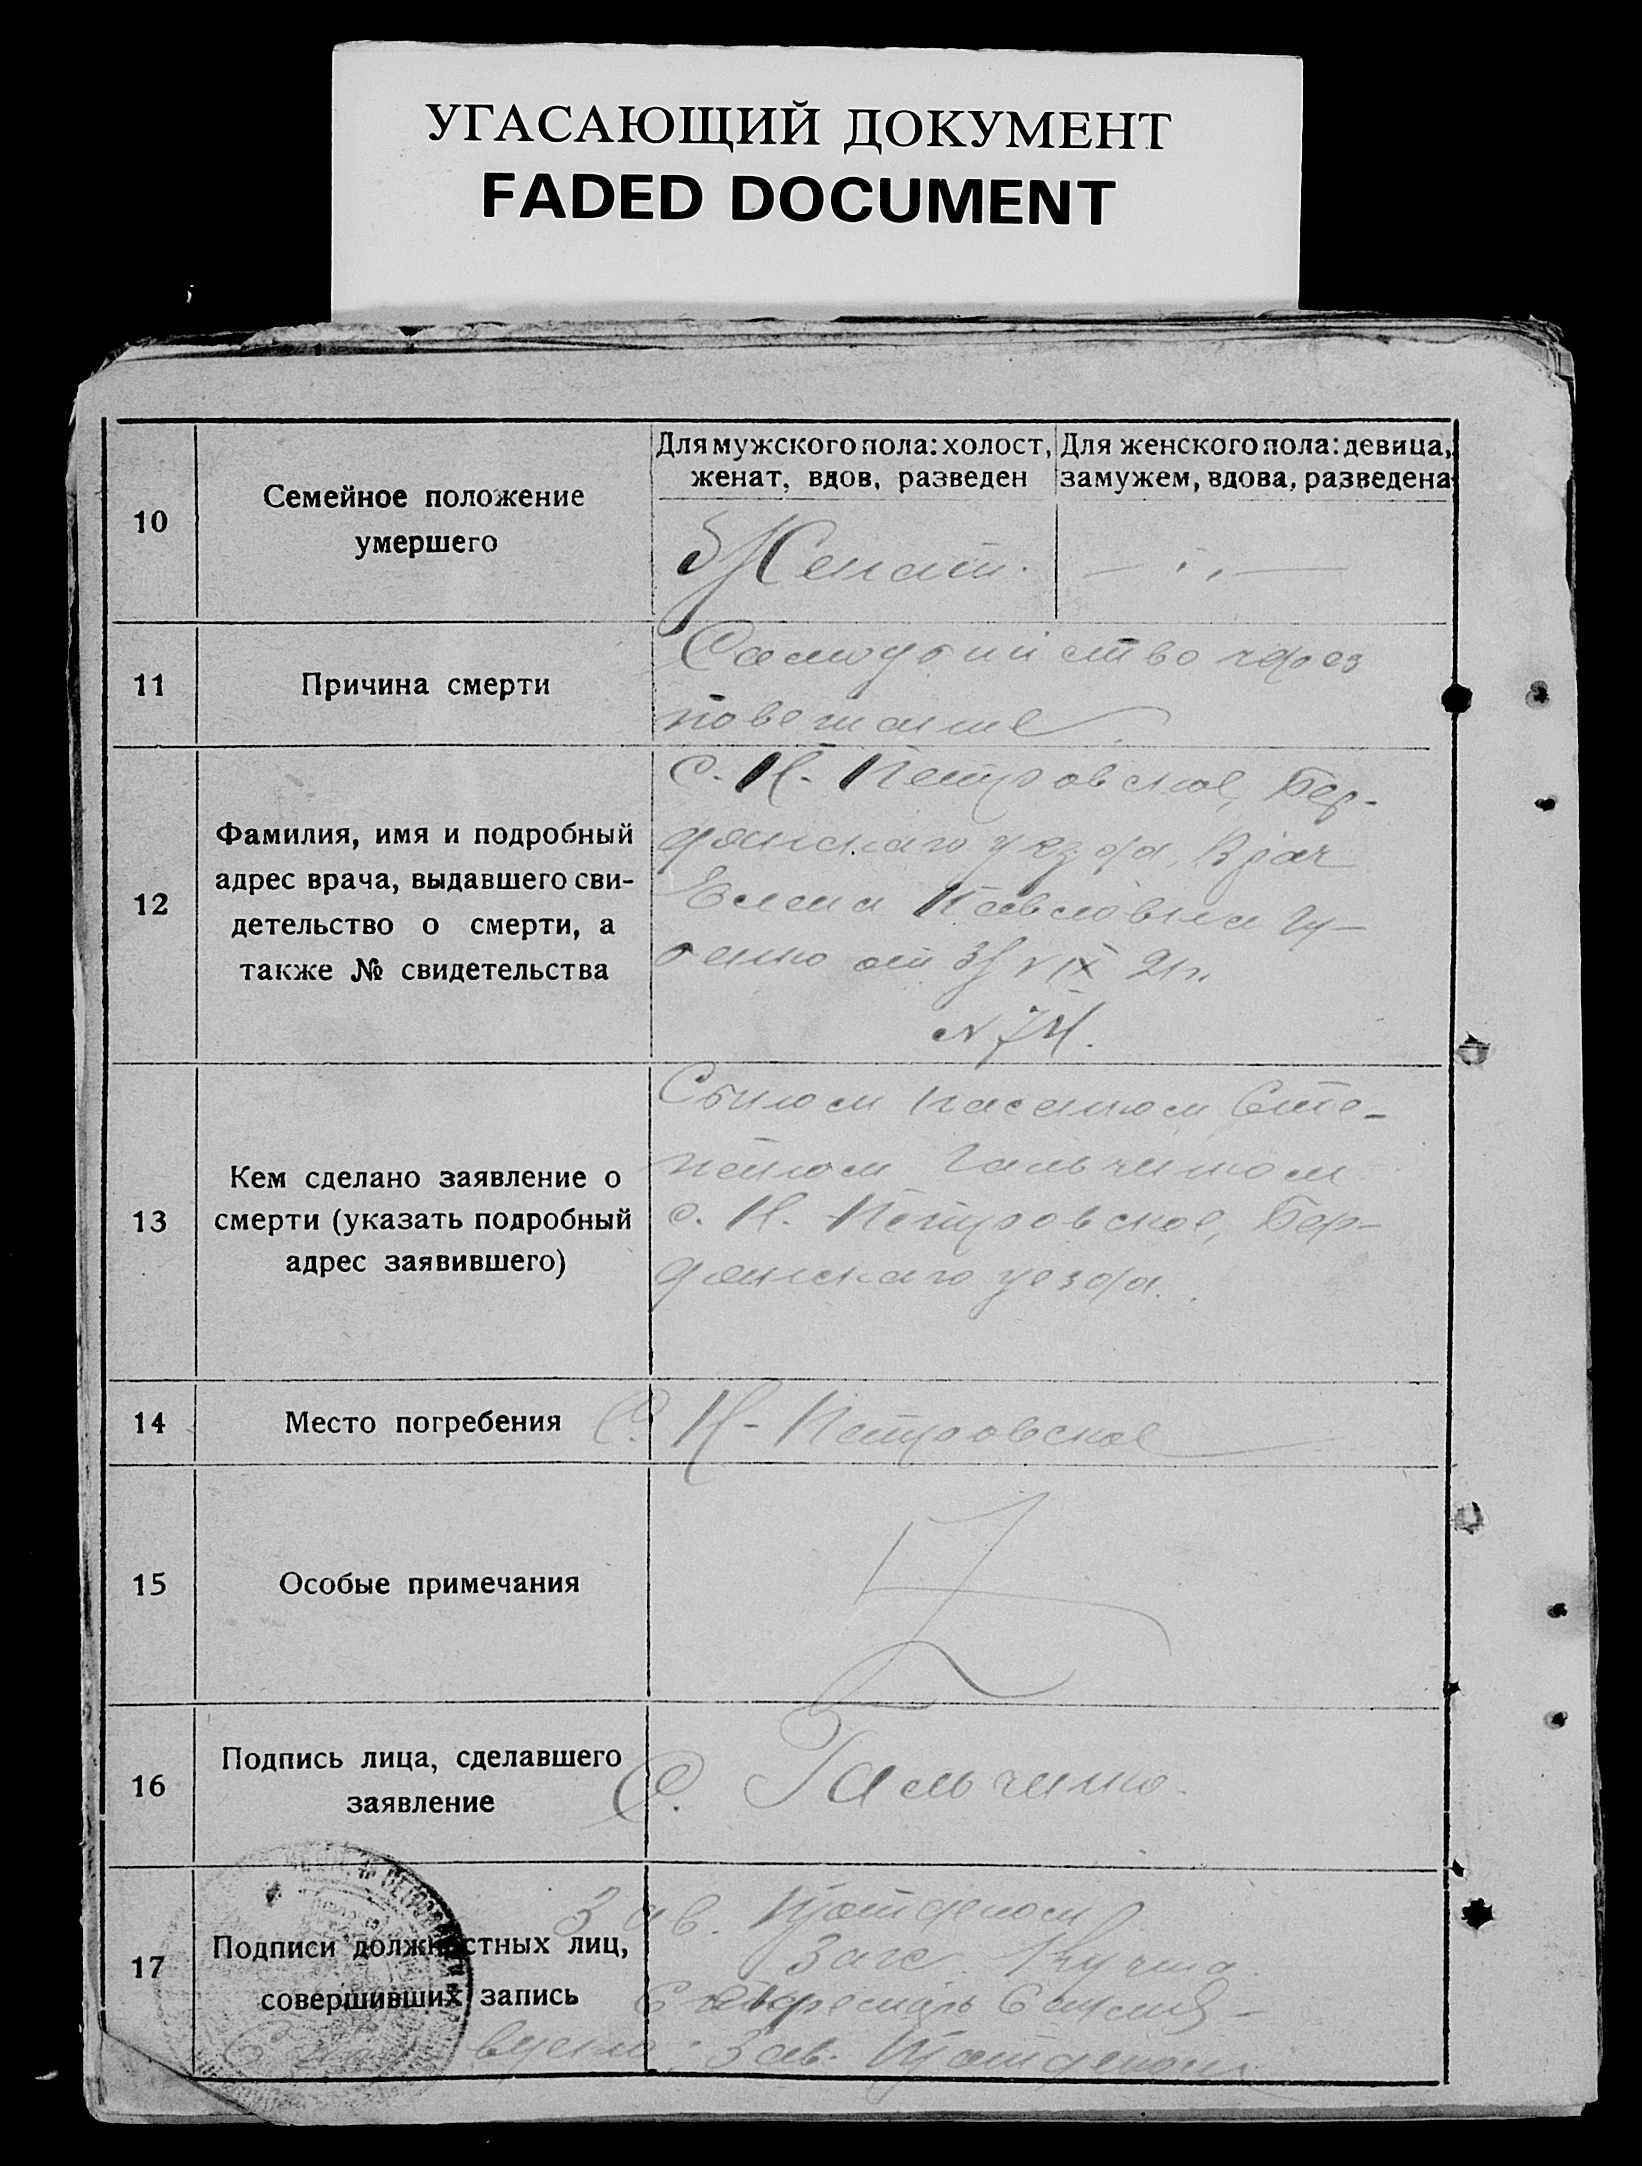 УГАСАЮЩИЙ ДОКУМЕНТ
FADED DOCUMENT
10
Семейное положение
умершего
Для мужского пола: холост,
женат, вдов, разведен
Для женского пола: девица,
замужем, вдова, разведена
Женат.
11
Причина смерти
Самоубийство через
повешание.
12
Фамилия, имя и подробный
адрес врача, выдавшего сви-
детельство о смерти, а
также № свидетельства
с. Н. Петровское, Бер-
дянскаго уезда, Врач
Елена Павловна
от IX 21 г.
N
13
Кем сделано заявление о
смерти (указать подробный
адрес заявившего)
Сыном Сте-
паном Гальченком
с. Н. Петровское, Бер-
дянскаго уезда.
14
Место погребения
С. Н-Петровское
15
Особые примечания
16
Подпись лица, сделавшего
заявление
С. Гальченко
17
Подписи должностных лиц,
совершивших запись
Зав.
Загс.
Секретарь
Зав.